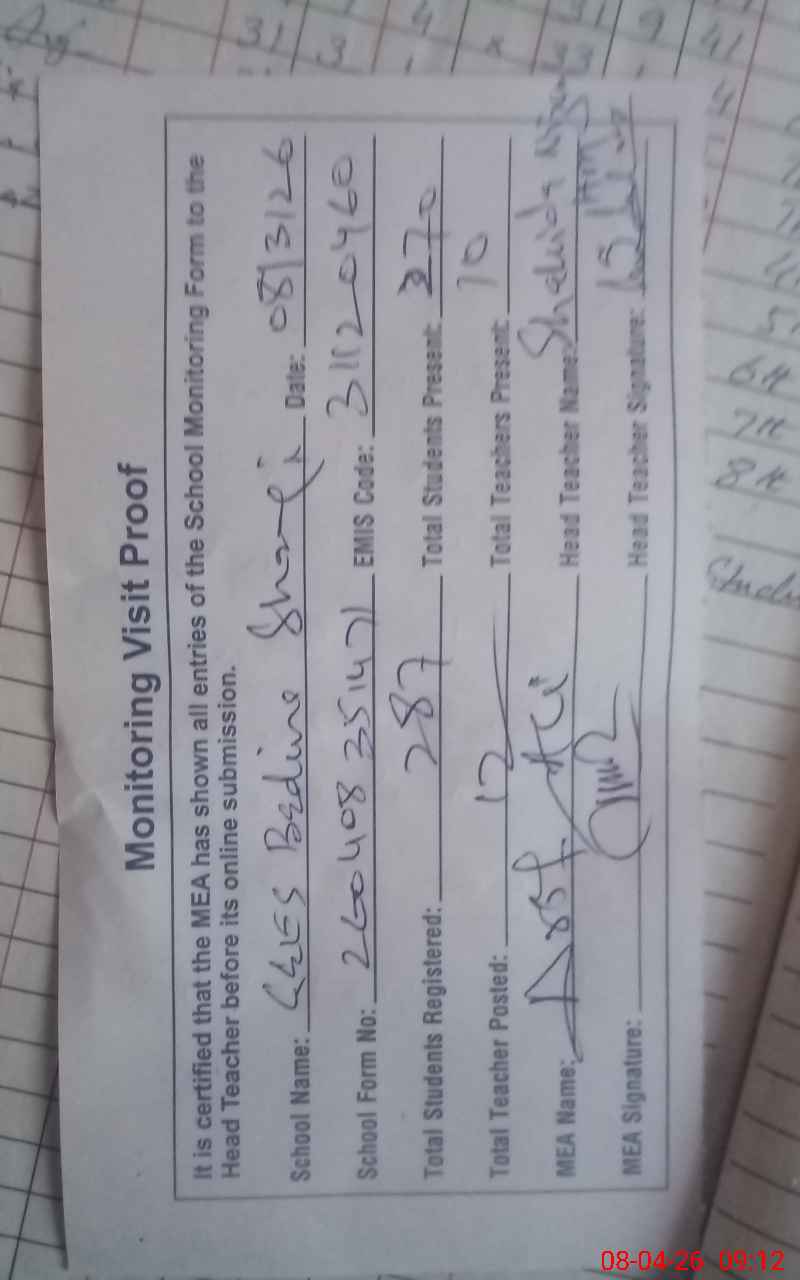 Monitoring Visit Proof
It is certified that the MEA has shown all entries of the School Monitoring Form to the
Head Teacher before its online submission.
School Name: GGES Bedine Sharif Date: 08/3/26
School Form No: 260408351471 EMIS Code: 31120460
Total Students Registered: 287 Total Students Present: 270
Total Teacher Posted: 12 Total Teachers Present: 10
MEA Name: Asif Ali Head Teacher Name: Shahida
MEA Signature: Head Teacher Signature:
08-04-26 09:12